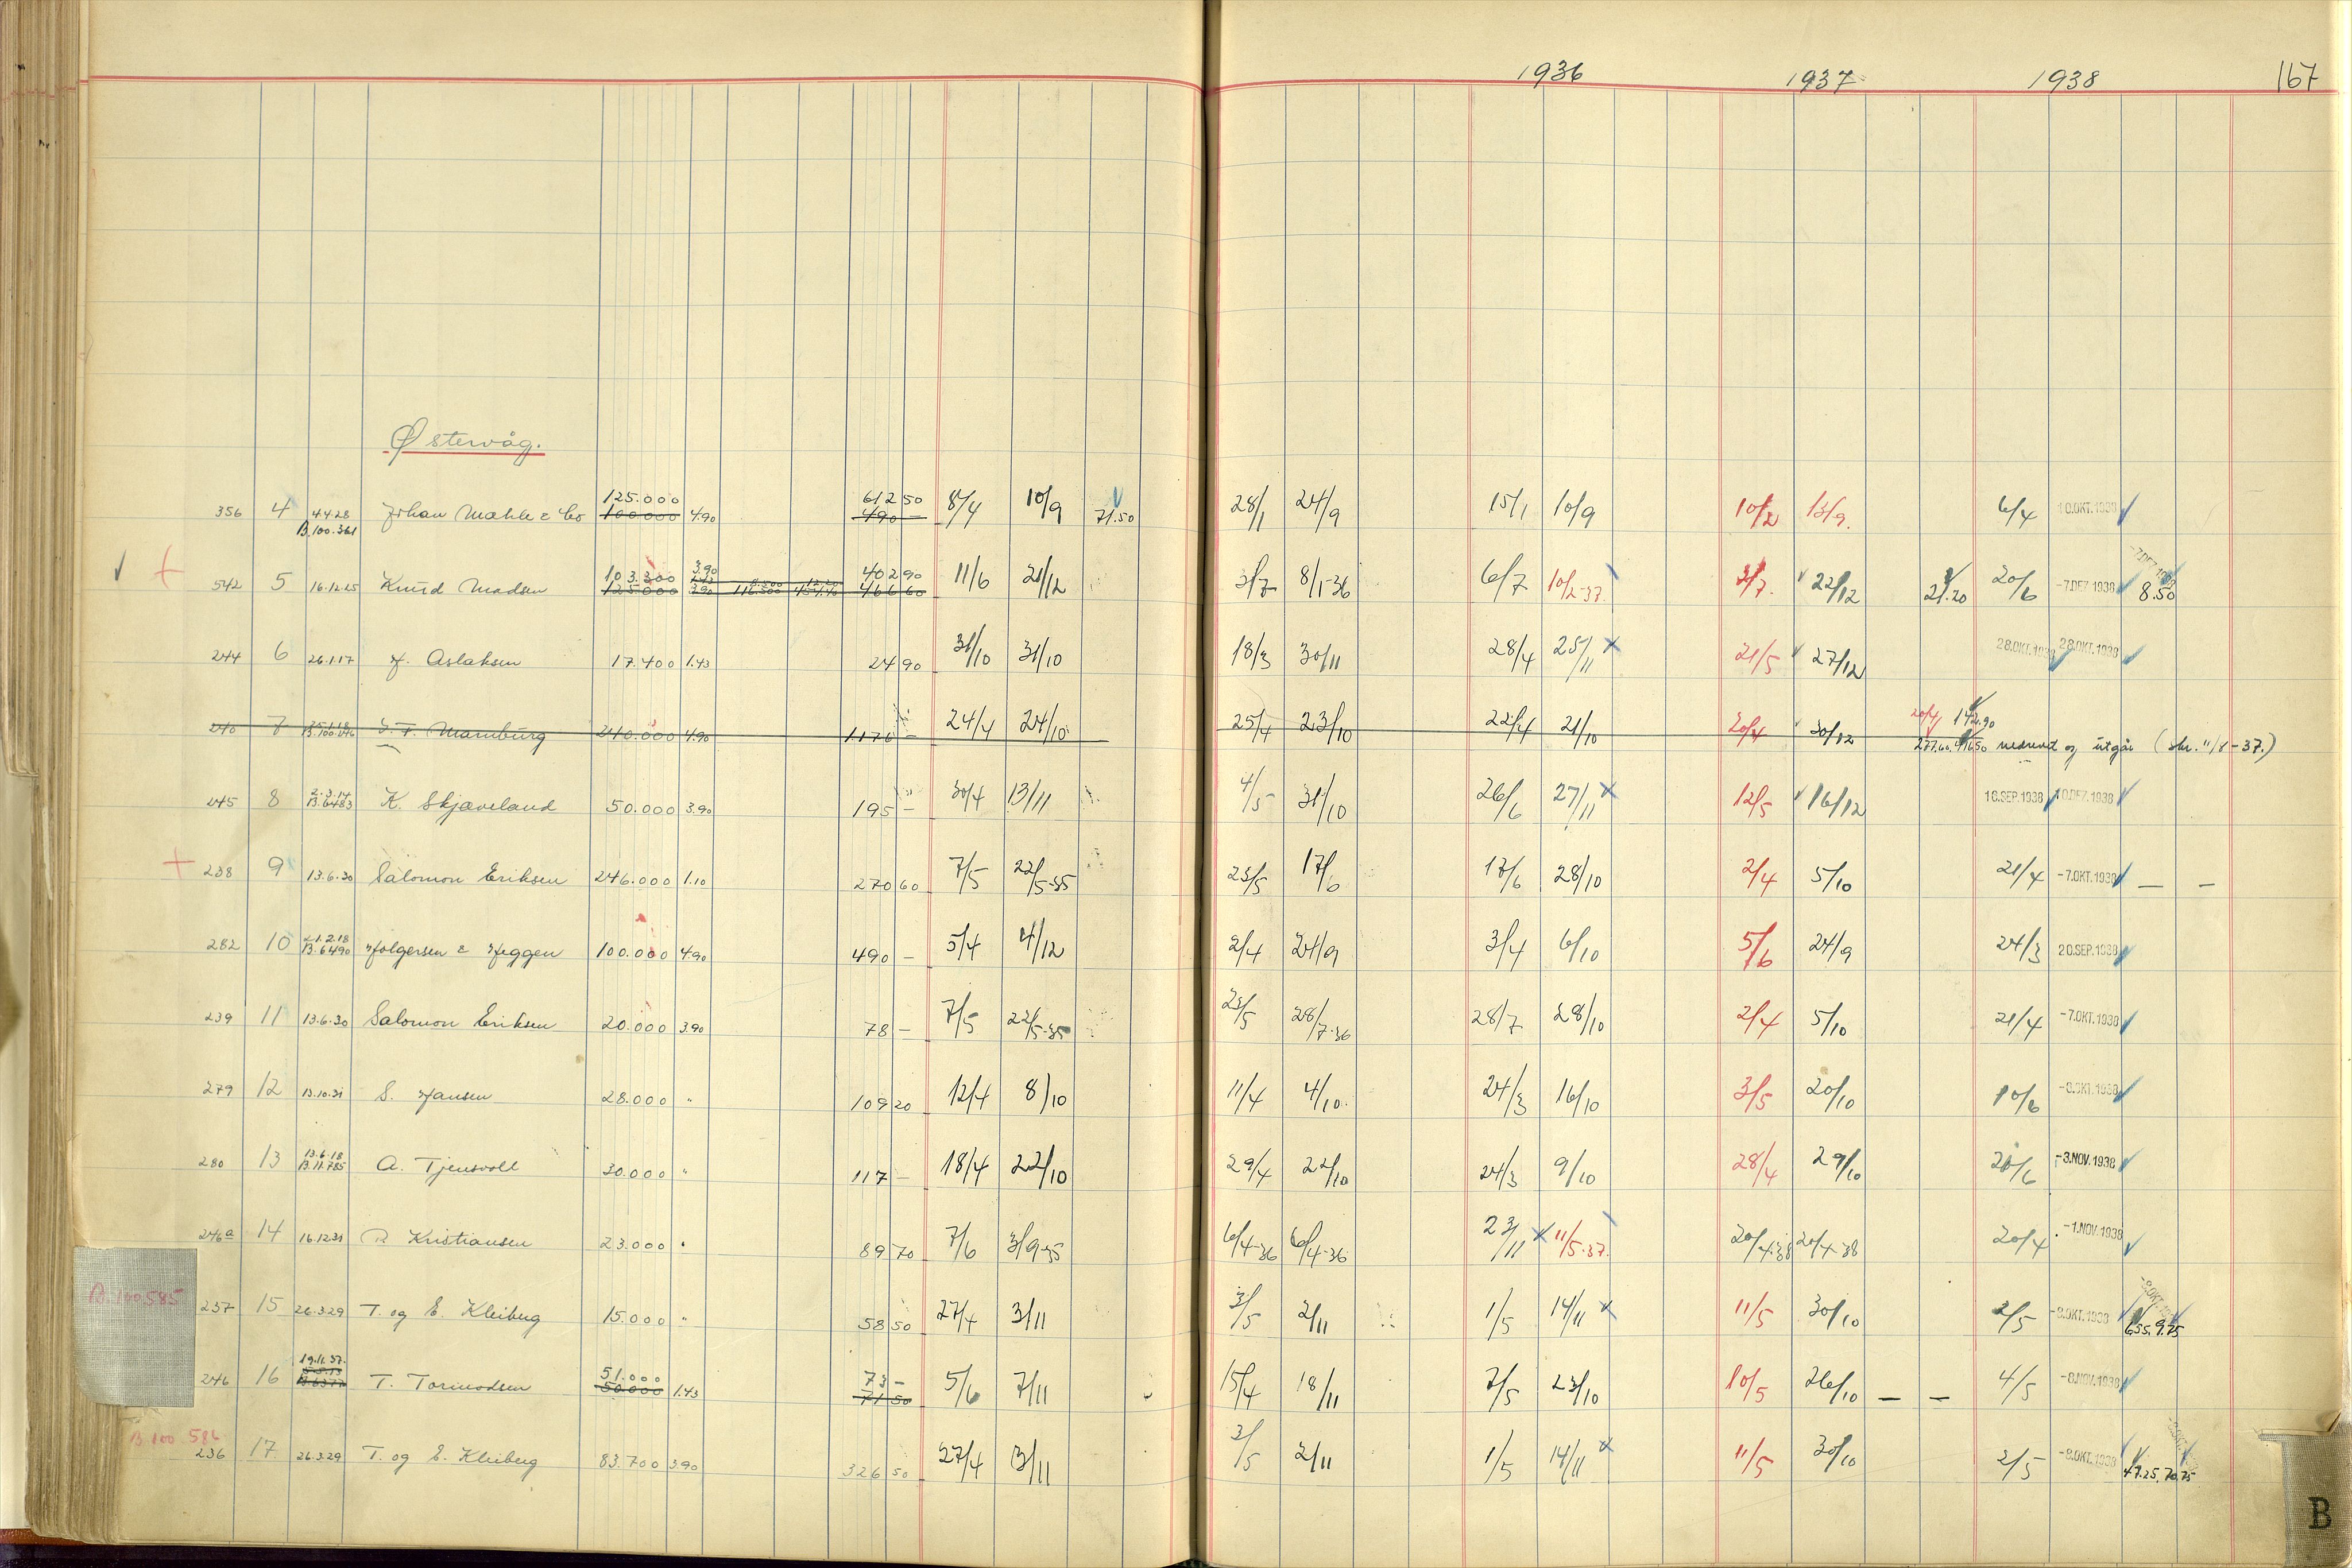 1936 1937 1938 167
Østervåg.
356 4 4.4.28 Johan Mæhle & Co 125.000 4.90 612 50 8/4 10/9 71.50 28/1 24/9 15/1 10/9 10/2 13/9. 6/4 10.OKT.1938
B.100.361 100.000 490 —
542 5 16.12.25 Knud Madsen 103.300 3.90 402 90 11/6 21/12 3/7 8/1-36 6/7 10/2-37. 3/7. 22/12 21.20 20/6 -7.DEZ.1938 8.50
125.000 3.90 116.500 454.40 466 60
244 6 26.1.17 H. Aslaksen 17.400 1.43 24 90 31/10 31/10 18/3 30/11 28/4 25/11 21/5 27/12 28.OKT.1938 28.OKT.1938
240 7 Mamburg 240.000 4.90 1.176 — 24/4 24/10 25/4 23/10 22/4 21/10 20/4 30/12 20/4 142.90
nedrevet og utgår (skr. 11/8-37.)
245 8 2.3.14 K. Skjæveland 50.000 3.90 195 — 30/4 13/11 4/5 31/10 26/6 27/11 12/5 16/12 16.SEP.1938 10.DEZ.1938
B.6483
238 9 13.6.30 Salomon Eriksen 246.000 1.10 270 60 7/5 22/5-35 23/5 17/6 17/6 28/10 2/4 5/10 21/4 -7.OKT.1938 — —
282 10 21.2.18 Holgersen & Heggen 100.000 4.90 490 — 5/4 4/12 2/4 24/9 3/4 6/10 5/6 24/9 24/3 20.SEP.1938
B.6490
239 11 13.6.30 Salomon Eriksen 20.000 3.90 78 — 7/5 22/5-35 23/5 28/7-36 28/7 28/10 2/4 5/10 21/4 -7.OKT.1938
279 12 13.10.31 S. Hansen 28.000 " 109 20 12/4 8/10 11/4 4/10. 24/3 16/10 3/5 20/10 10/6 -8.OKT.1938
280 13 13.6.18 A. Tjensvoll 30.000 " 117 — 18/4 22/10 29/4 22/10 24/3 9/10 28/4 29/10 20/6 -3.NOV.1938
B.11.785
246a 14 16.12.31 R Kristiansen 23.000 " 89 70 7/6 3/9-35 6/4-36 6/4-36 23/11 11/5-37. 20/4-38 20/4-38 20/4 -1.NOV.1938
B.100585
237 15 26.3.29 T. og E. Kleiberg 15.000 " 58 50 27/4 3/11 3/5 2/11 1/5 14/11 11/5 30/10 2/5 -8.OKT.1938 6.55. 9.25
246 16 19.11.37. T. Tormodsen 51.000 1.43 73 — 5/6 7/11 15/4 18/11 7/5 23/10 10/5 26/10 — — 4/5 -8.NOV.1938
50.000 71 50
B.100 586
236 17 26.3.29 T. og E. Kleiberg 83.700 3.90 326 50 27/4 3/11 3/5 2/11 1/5 14/11 11/5 30/10 2/5 -8.OKT.1938 47.25. 70.75
B